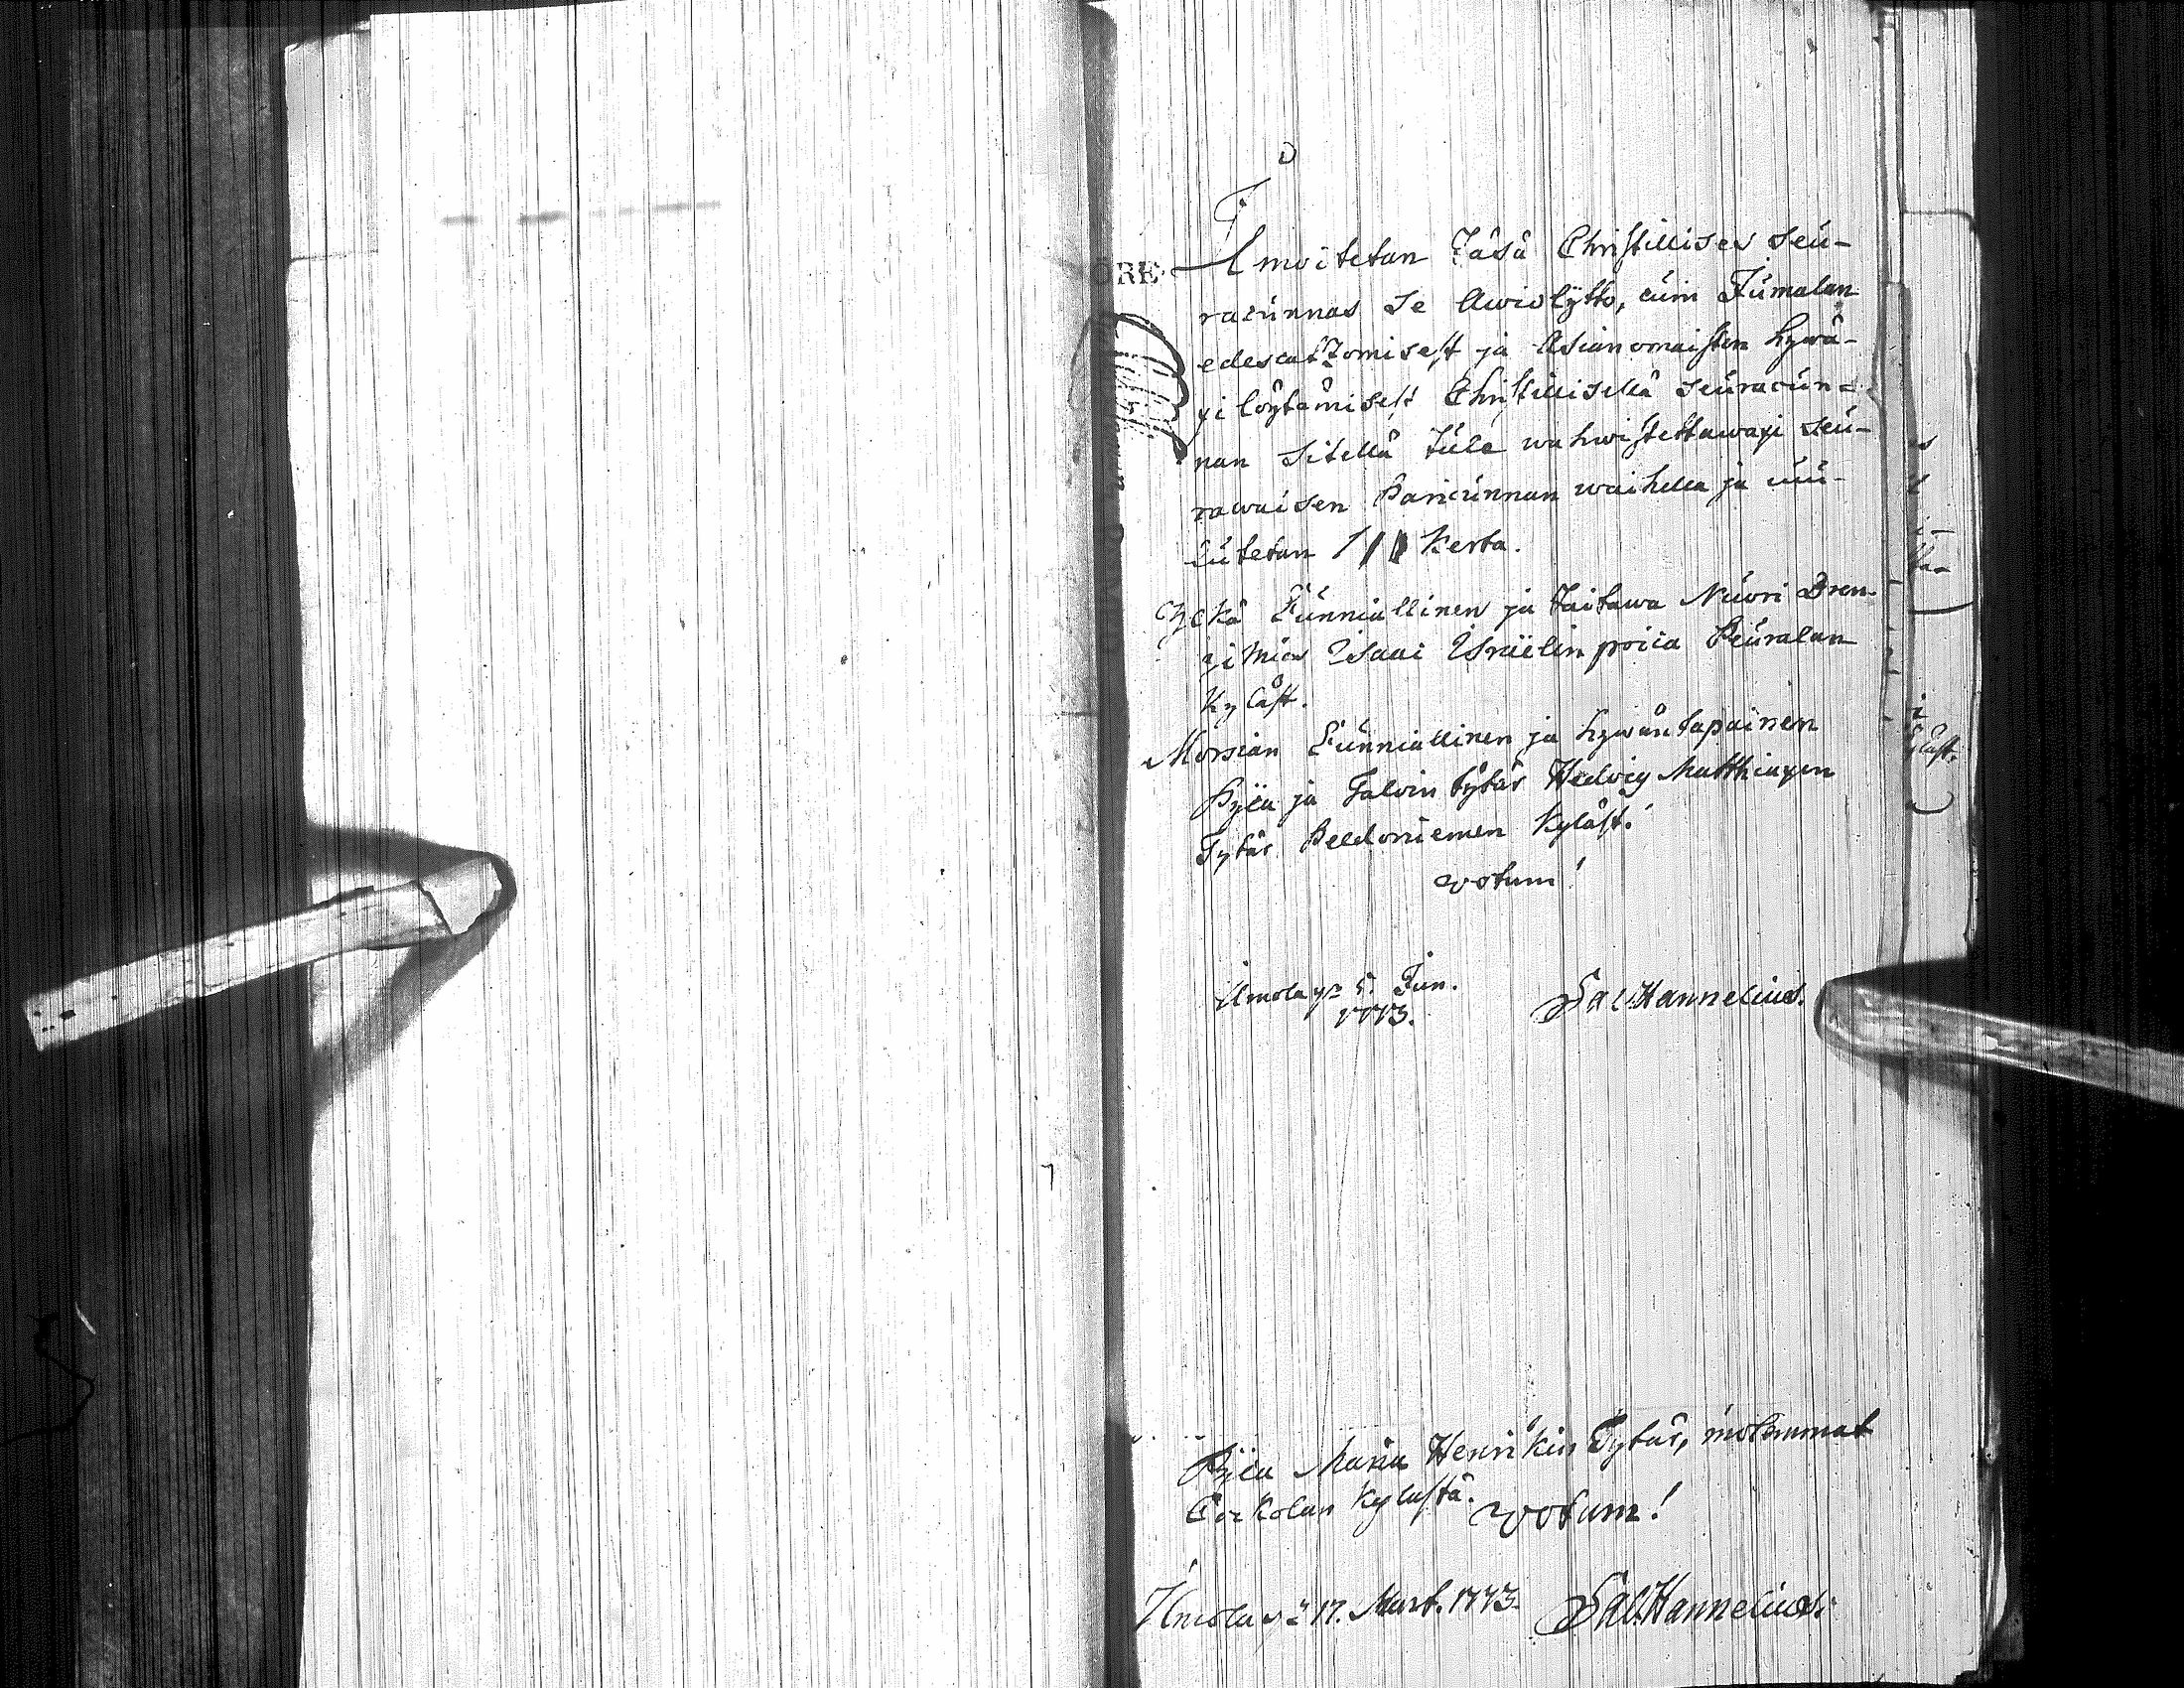 ÖRE
Ilmoitetan Täsä Christillises seu-
racunnas se Awiolijtto, cuin Jumalan
edescatzomisest ja Asianomaisten hywä-
xi löytämisest Christillisellä seuracun-
nan sitellä tule wahwistettawaxi seu-
rawaisen Paricunnan waihella ja cuu-
lutetan 1 Kerta.
Ylkä Cunniallinen ja taitawa Nuori Dren-
gi Mies Isaac Israelin poica Peuralan
Kyläst.
Morsian Cunniallinen ja hywäntapainen
Pijca ja Talointytär Hedvig Matthiaxen
Tytär Peldoniemen Kyläst.
votum!
Ilmola 5. Jun.
1773.
Sal. Hannelius.
Pijca Maria Henrikin Tytär, molemmat
Corkolan Kylästä.
votum!
Ilmola 17. Mart. 1773.
Sal. Hannelius.